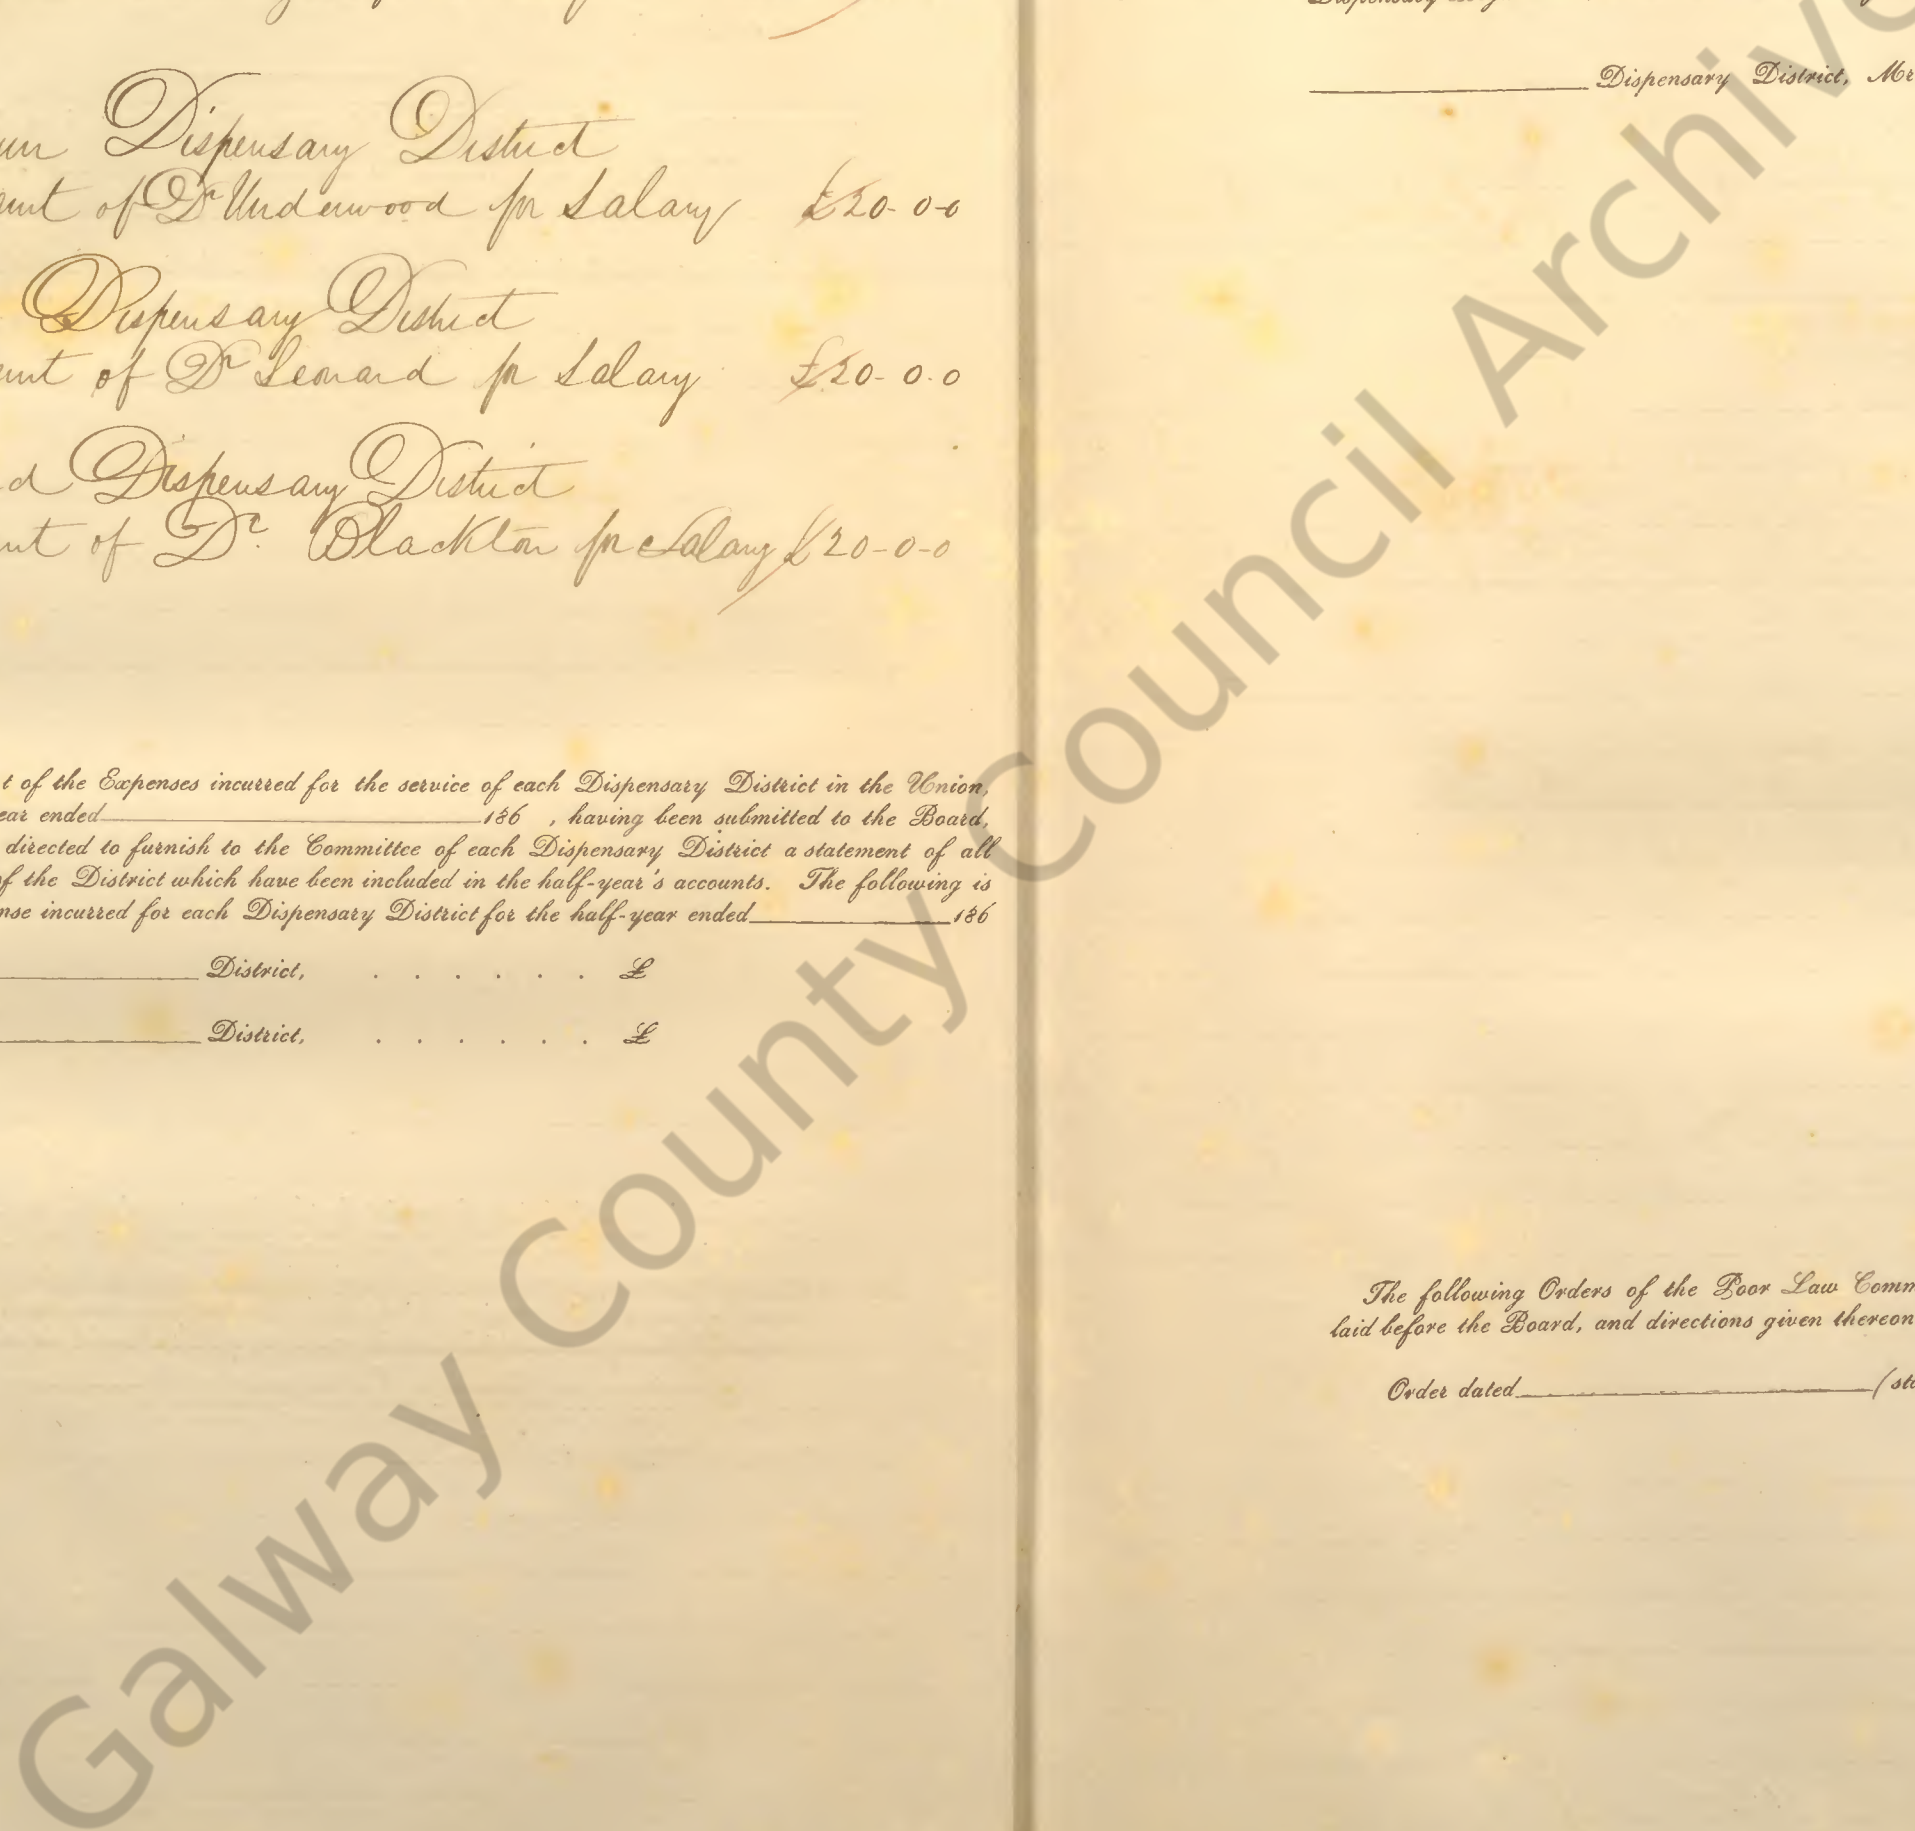 Dispensary District
of Dr Underwood for Salary £20-0-0
Dispensary District
of Dr Leonard for Salary £20-0.0
Dispensary District
of Dr. Blackton for Salary £20-0-0
t of the Expenses incurred for the service of each Dispensary District in the Union,
ear ended 186 , having been submitted to the Board,
directed to furnish to the Committee of each Dispensary District a statement of all
f the District which have been included in the half-year's accounts. The following is
nse incurred for each Dispensary District for the half-year ended 186
District, . . . . . . £
District, . . . . . . £
Dispensary District, Mr
The following Orders of the Poor Law Comm
laid before the Board, and directions given thereon
Order dated (sta
Galway County Council Archive